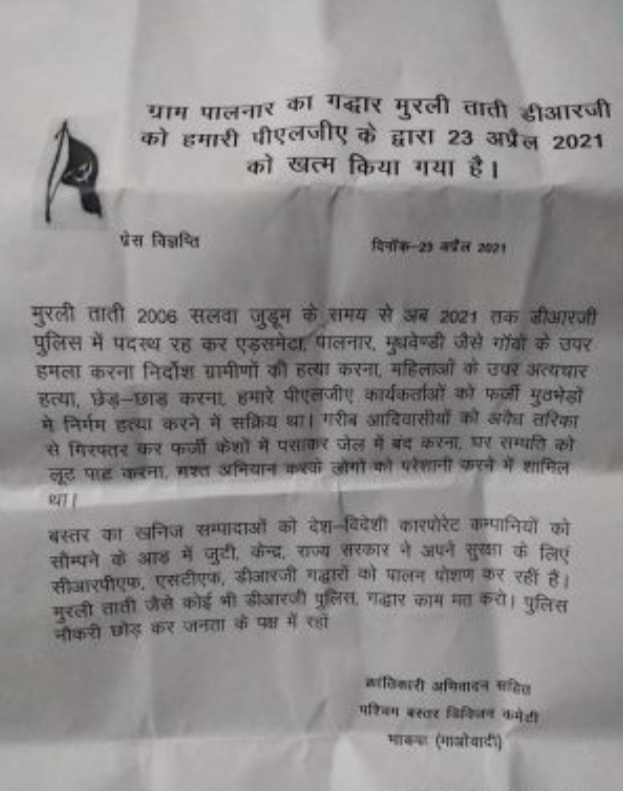 ग्राम पालनार का गद्धार मुरली ताती डीआरजी
को हमारी पीएलजीए के द्वारा 23 अप्रैल 2021
को खत्म किया गया है।
प्रेस विज्ञप्ति
दिनाँक-23 अप्रैल 2021
मुरली ताती 2006 सलवा जुडूम के समय से अब 2021 तक डीआरजी
पुलिस में पदस्थ रह कर एड़समेटा, पालनार, मुधवेण्डी जैसे गाँवों के उपर
हमला करना निर्दोश ग्रामीणों की हत्या करना, महिलाओं के उपर अत्यचार
हत्या, छेड़-छाड़ करना, हमारे पीएलजीए कार्यकर्ताओं को फर्जी मुठभेड़ों
मे निर्मम हत्या करने में सक्रिय था। गरीब आदिवासीयों को अवैध तरिका
से गिरफ्तर कर फर्जी केशों में पसाकर जेल में बंद करना, घर सम्पति को
लूट पाट करना, गश्त अभियान करके लोगों को परेशानी करने में शामिल
था।
बस्तर का खनिज सम्पादाओं को देश-विदेशी कारपोरेट कम्पानियों को
सौम्पने के आड में जुटी, केन्द्र, राज्य सरकार ने अपने सुरक्षा के लिए
सीआरपीएफ, एसटीएफ, डीआरजी गद्धारों को पालन पोशण कर रहीं हैं।
मुरली ताती जैसे कोई भी डीआरजी पुलिस, गद्धार काम मत करो। पुलिस
नौकरी छोड़ कर जनता के पक्ष में रहों
क्रांतिकारी अभिवादन सहित
पश्चिम बस्तर डिविजन कमेटी
भाकपा (माओवादी)